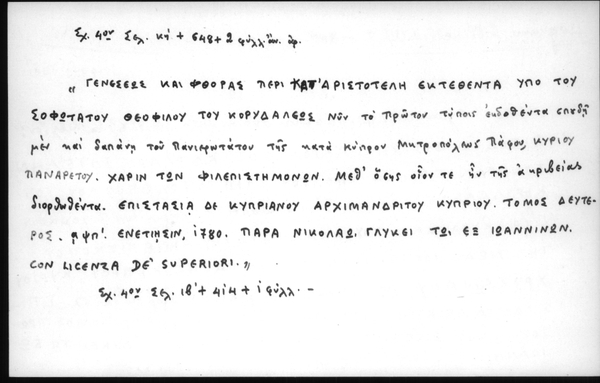 Σχ. 4ον Σελ. κή + 648 + 2 φύλλ. ἄν. ἀρ.
„ ΓΕΝΕΣΕΩΣ ΚΑΙ ΦΘΟΡΑΣ ΠΕΡΙ ΚΑΤ' ΑΡΙΣΤΟΤΕΛΗ ΕΚΤΕΘΕΝΤΑ ΥΠΟ ΤΟΥ
ΣΟΦΩΤΑΤΟΥ ΘΕΟΦΙΛΟΥ ΤΟΥ ΚΟΡΥΔΑΛΕΩΣ Νῦν τὸ πρῶτον τύποις ἐκδοθέντα σπυδῇ
μὲν καὶ δαπάνῃ τοῦ Πανιερωτάτου τῆς κατὰ Κύπρον Μητροπόλεως Πάφου, ΚΥΡΙΟΥ
ΠΑΝΑΡΕΤΟΥ. ΧΑΡΙΝ ΤΩΝ ΦΙΛΕΠΙΣΤΗΜΟΝΩΝ. Μεθ' ὅσης οἷον τε ἦν τῆς ἀκριβείας
διορθωθέντα. ΕΠΙΣΤΑΣΙᾼ ΔΕ ΚΥΠΡΙΑΝΟΥ ΑΡΧΙΜΑΝΔΡΙΤΟΥ ΚΥΠΡΙΟΥ. ΤΟΜΟΣ ΔΕΥΤΕ-
ΡΟΣ. αψπ'. ΕΝΕΤΙΗΣΙΝ, 1780. ΠΑΡΑ ΝΙΚΟΛΑΩ. ΓΛΥΚΕΙ ΤΩΙ ΕΞ ΙΩΑΝΝΙΝΩΝ.
CON LICENZA DE' SUPERIORI. „
Σχ. 4ον Σελ. ιβ' + 414 + 1 φύλλ. –